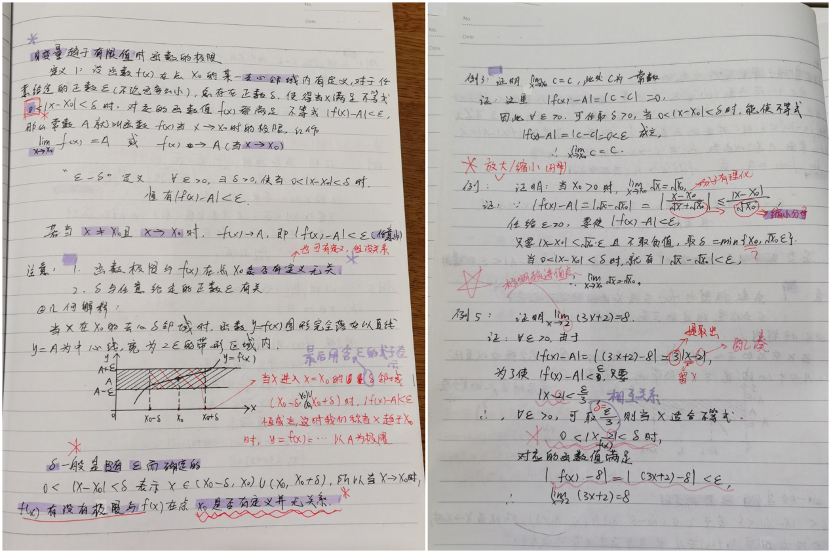 自变量趋于有限值时函数的极限
定义1: 设函数f(x)在点 x₀的某一去心邻域内有定义,对于任
意给定的正数ε(不论它多么小), 总存在正数δ, 使得当x满足不等式
0<|x-x₀|<δ 时, 对应的函数值 f(x) 都满足 不等式 |f(x)-A|<ε,
那么常数 A 就叫函数 f(x)当 x→x₀时的极限, 记作
lim x→x₀ f(x) = A 或 f(x) → A (当x→x₀)
"ε-δ" 定义 ∀ε>0, ∃δ>0, 使当 0<|x-x₀|<δ 时.
恒有|f(x)-A|<ε.
若当 x≠x₀且 x→x₀时, f(x)→A, 即 |f(x)-A|<ε
注意: 1. 函数极限与 f(x)在点x₀是否有定义无关
2. δ与任意给定的正数ε有关
几何解释:
当 x 在 x₀的去心δ邻域时. 函数 y=f(x)图形完全落在以直线
y=A为中心线, 宽为 2ε的带形区域内.
y
y=f(x)
A+ε
A
A-ε
0 x₀-δ x₀ x₀+δ x
当x进入 x=x₀的δ邻域
(x₀-δ, x₀)∪(x₀, x₀+δ)时, |f(x)-A|<ε
恒成立, 这时我们称当x趋于x₀
时, y=f(x)=… 以A为极限
δ一般是随ε而确定的
0< |x-x₀|<δ 表示 x∈(x₀-δ, x₀)∪(x₀, x₀+δ), 所以当x→x₀时,
f(x)有没有极限与f(x)在点 x₀是否有定义并无关系.
No
Date
例3: 证明 lim x→x₀ C = C, 此处 C为一常数
证: 这里 |f(x)-A|=|C-C|=0.
因此 ∀ε>0. 可任取δ>0, 当 0<|x-x₀|<δ时, 能使不等式
|f(x)-A|=|C-C|=0<ε 成立,
∴ lim x→x₀ C = C.
放大/缩小(分母)
例: 证明: 当 x₀>0时, lim x→x₀ √x=√x₀. 分子有理化
证: ∵ |f(x)-A|=|√x-√x₀| = |x-x₀/√x+√x₀| ≤ |x-x₀|/√x₀, 缩小分母
任给 ε>0, 要使 |f(x)-A|<ε,
只要 |x-x₀|<√x₀·ε 且 x不取负值, 取 δ=min{x₀, √x₀ε}.
当 0<|x-x₀|<δ时, 就有 |√x-√x₀|<ε,
∴ lim x→x₀ √x=√x₀.
例5: 证明 lim x→2 (3x+2)=8.
提取出
证: ∀ε>0, 由于
|f(x)-A|=|(3x+2)-8|=3|x-2|,
留x
为了使 |f(x)-A|<ε, 只要
|x-2|<ε/3, 相互关系
∴ ∀ε>0, 可取 δ=ε/3, 则当 x适合不等式.
0<|x-2|<δ时,
对应的函数值满足
|f(x)-8|=|(3x+2)-8|<ε,
∴ lim x→2 (3x+2)=8